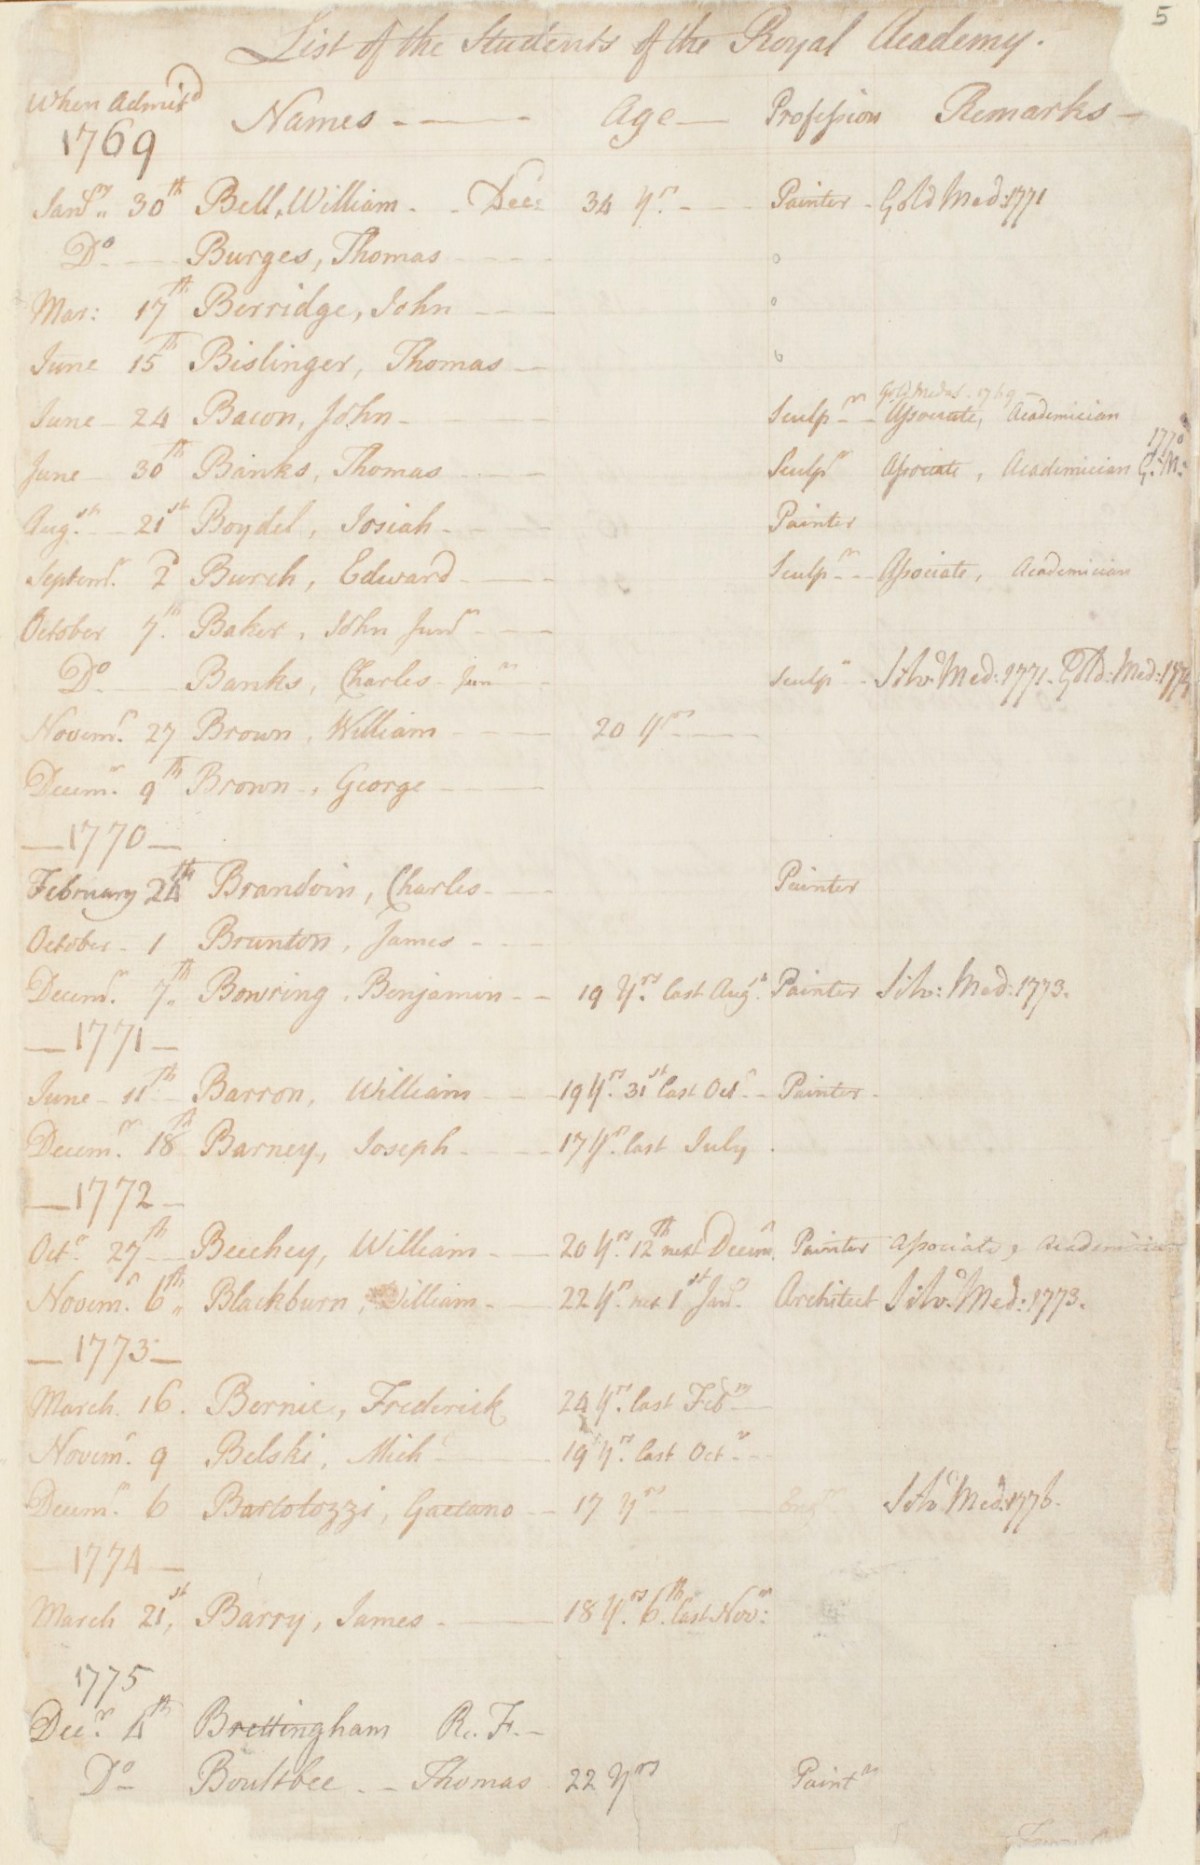 5
List of the Students of the Royal Academy.
When Admitd Names Age Profession Remarks
1769
Janry. 30th Bell, William - Dec: 34 Yrs. Painter - Gold Med: 1771
Do Burges, Thomas
Mar: 17th Berridge, John
June 15th Bislinger, Thomas
Gold Medal - 1769
June 24 Bacon, John Sculpr Associate, Academician
1770
June 30th Banks, Thomas Sculpr Associate, Academician G: M:
Augst. 21st Boydel, Josiah Painter
Septemr. 2 Burch, Edward Sculpr Associate, Academician
October 7th. Baker, John Junr
Do Banks, Charles Junr Sculpr Silvr Med: 1771. Gold: Med: 1774
Novemr. 27 Brown, William 20 Yrs
Decemr. 9th Brown, George
1770
February 24th Brandoin, Charles Painter
October 1 Brunton, James
Decemr. 7th. Bowring, Benjamin 19 Yrs. last Augst. Painter Silv: Med: 1773.
1771
June 11th Barron, William 19 Yrs. 31st last Octr. Painter
Decemr. 18th Barney, Joseph 17 Yrs. last July.
1772
Octr. 27th Beechey, William 20 Yrs. 12th next Decemr. Painter Associate, Academician
Novemr. 6th Blackburn, William 22 Yrs. nex 1st Janr. Architect Silvr Med: 1773.
1773
March 16. Bernie, Frederick 24 Yrs. last Febry
Novemr. 9 Belski, Mich 19 Yrs. last Octr
Decemr. 6 Bartolozzi, Gaetano 17 Yrs Engr Silvr Med: 1776.
1774
March 21st, Barry, James 18 Yrs. 6th. last Novr:
1775
Decr. 4th Brettingham R. F.
Do Boultbee - Thomas 22 Yrs Paintr